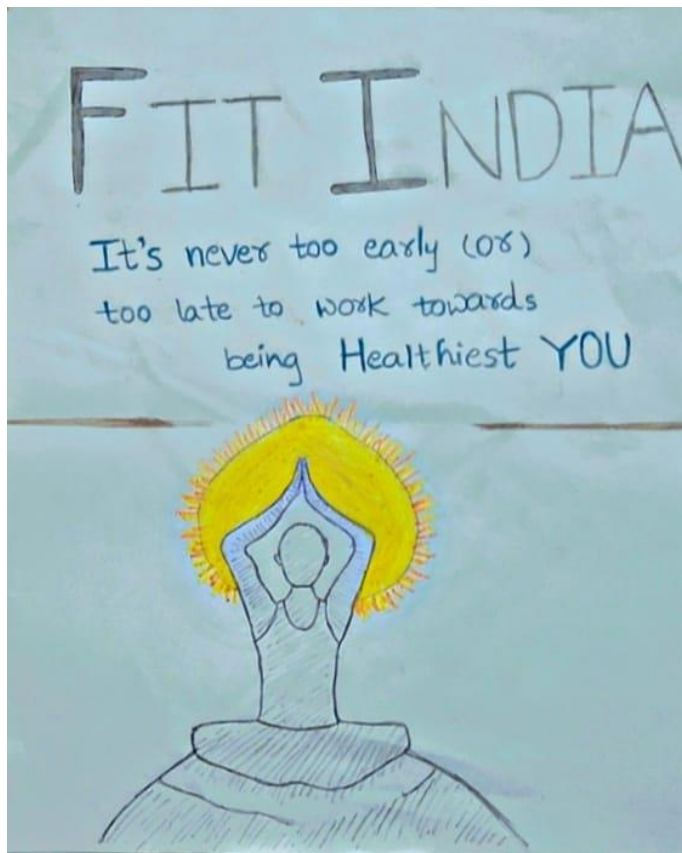 FIT INDIA
It's never too early (or)
too late to work towards
being Healthiest YOU